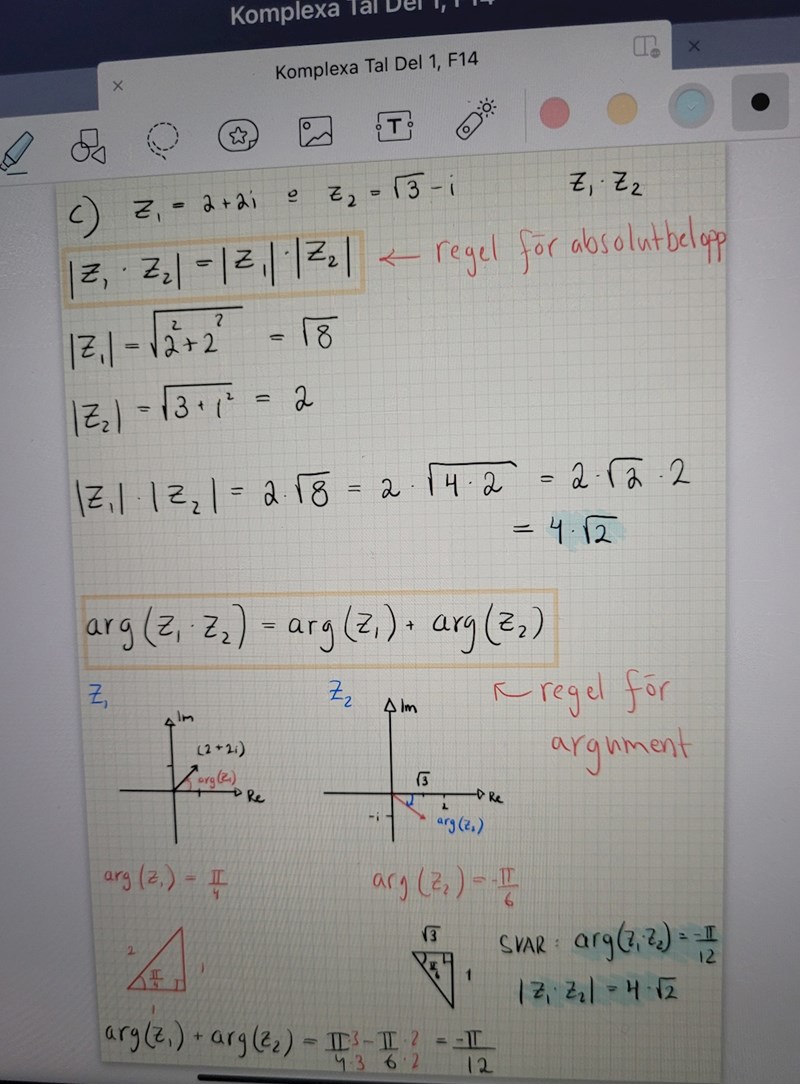 Komplexa Tal Del 1, F14
Komplexa Tal Del 1, F14
T
c) Z₁ = 2+2i e Z₂ = √3 - i Z₁ · Z₂
|Z₁ · Z₂| = |Z₁| · |Z₂| ← regel för absolutbelopp
|Z₁| = √(2²+2²) = √8
|Z₂| = √(3+1²) = 2
|Z₁| · |Z₂| = 2·√8 = 2·√(4·2) = 2·√2·2
= 4·√2
arg(Z₁ · Z₂) = arg(Z₁) + arg(Z₂)
← regel för
argument
Z₁
Im
(2+2i)
arg(Z₁)
Re
Z₂
Im
√3
2
Re
-i
arg(Z₂)
arg(Z₁) = π/4
arg(Z₂) = -π/6
2
π/4
1
1
√3
π/6
1
SVAR: arg(Z₁·Z₂) = -π/12
|Z₁·Z₂| = 4·√2
arg(Z₁) + arg(Z₂) = π·3/4·3 - π·2/6·2 = -π/12